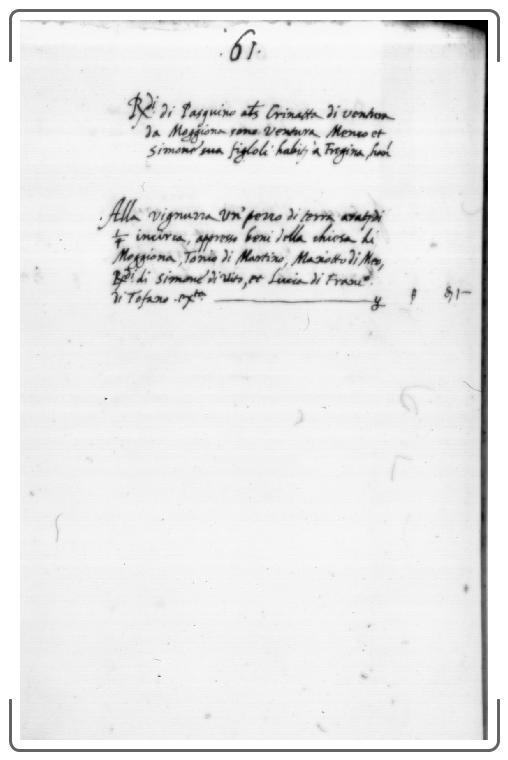 .61.
Rdi di Pasquino als Crinatta di ventura
da Moggiona sono Ventura Menco et
Simone sua figloli habi. a Fregina
Alla vignurra Un pezzo di terra arat. di
1/4 incirca, appresso beni della chiesa di
Moggiona, Tonio di Martino, Mariotto di Meo,
Rdi di Simone di Vito, et Lucia di Franco
di Tofano